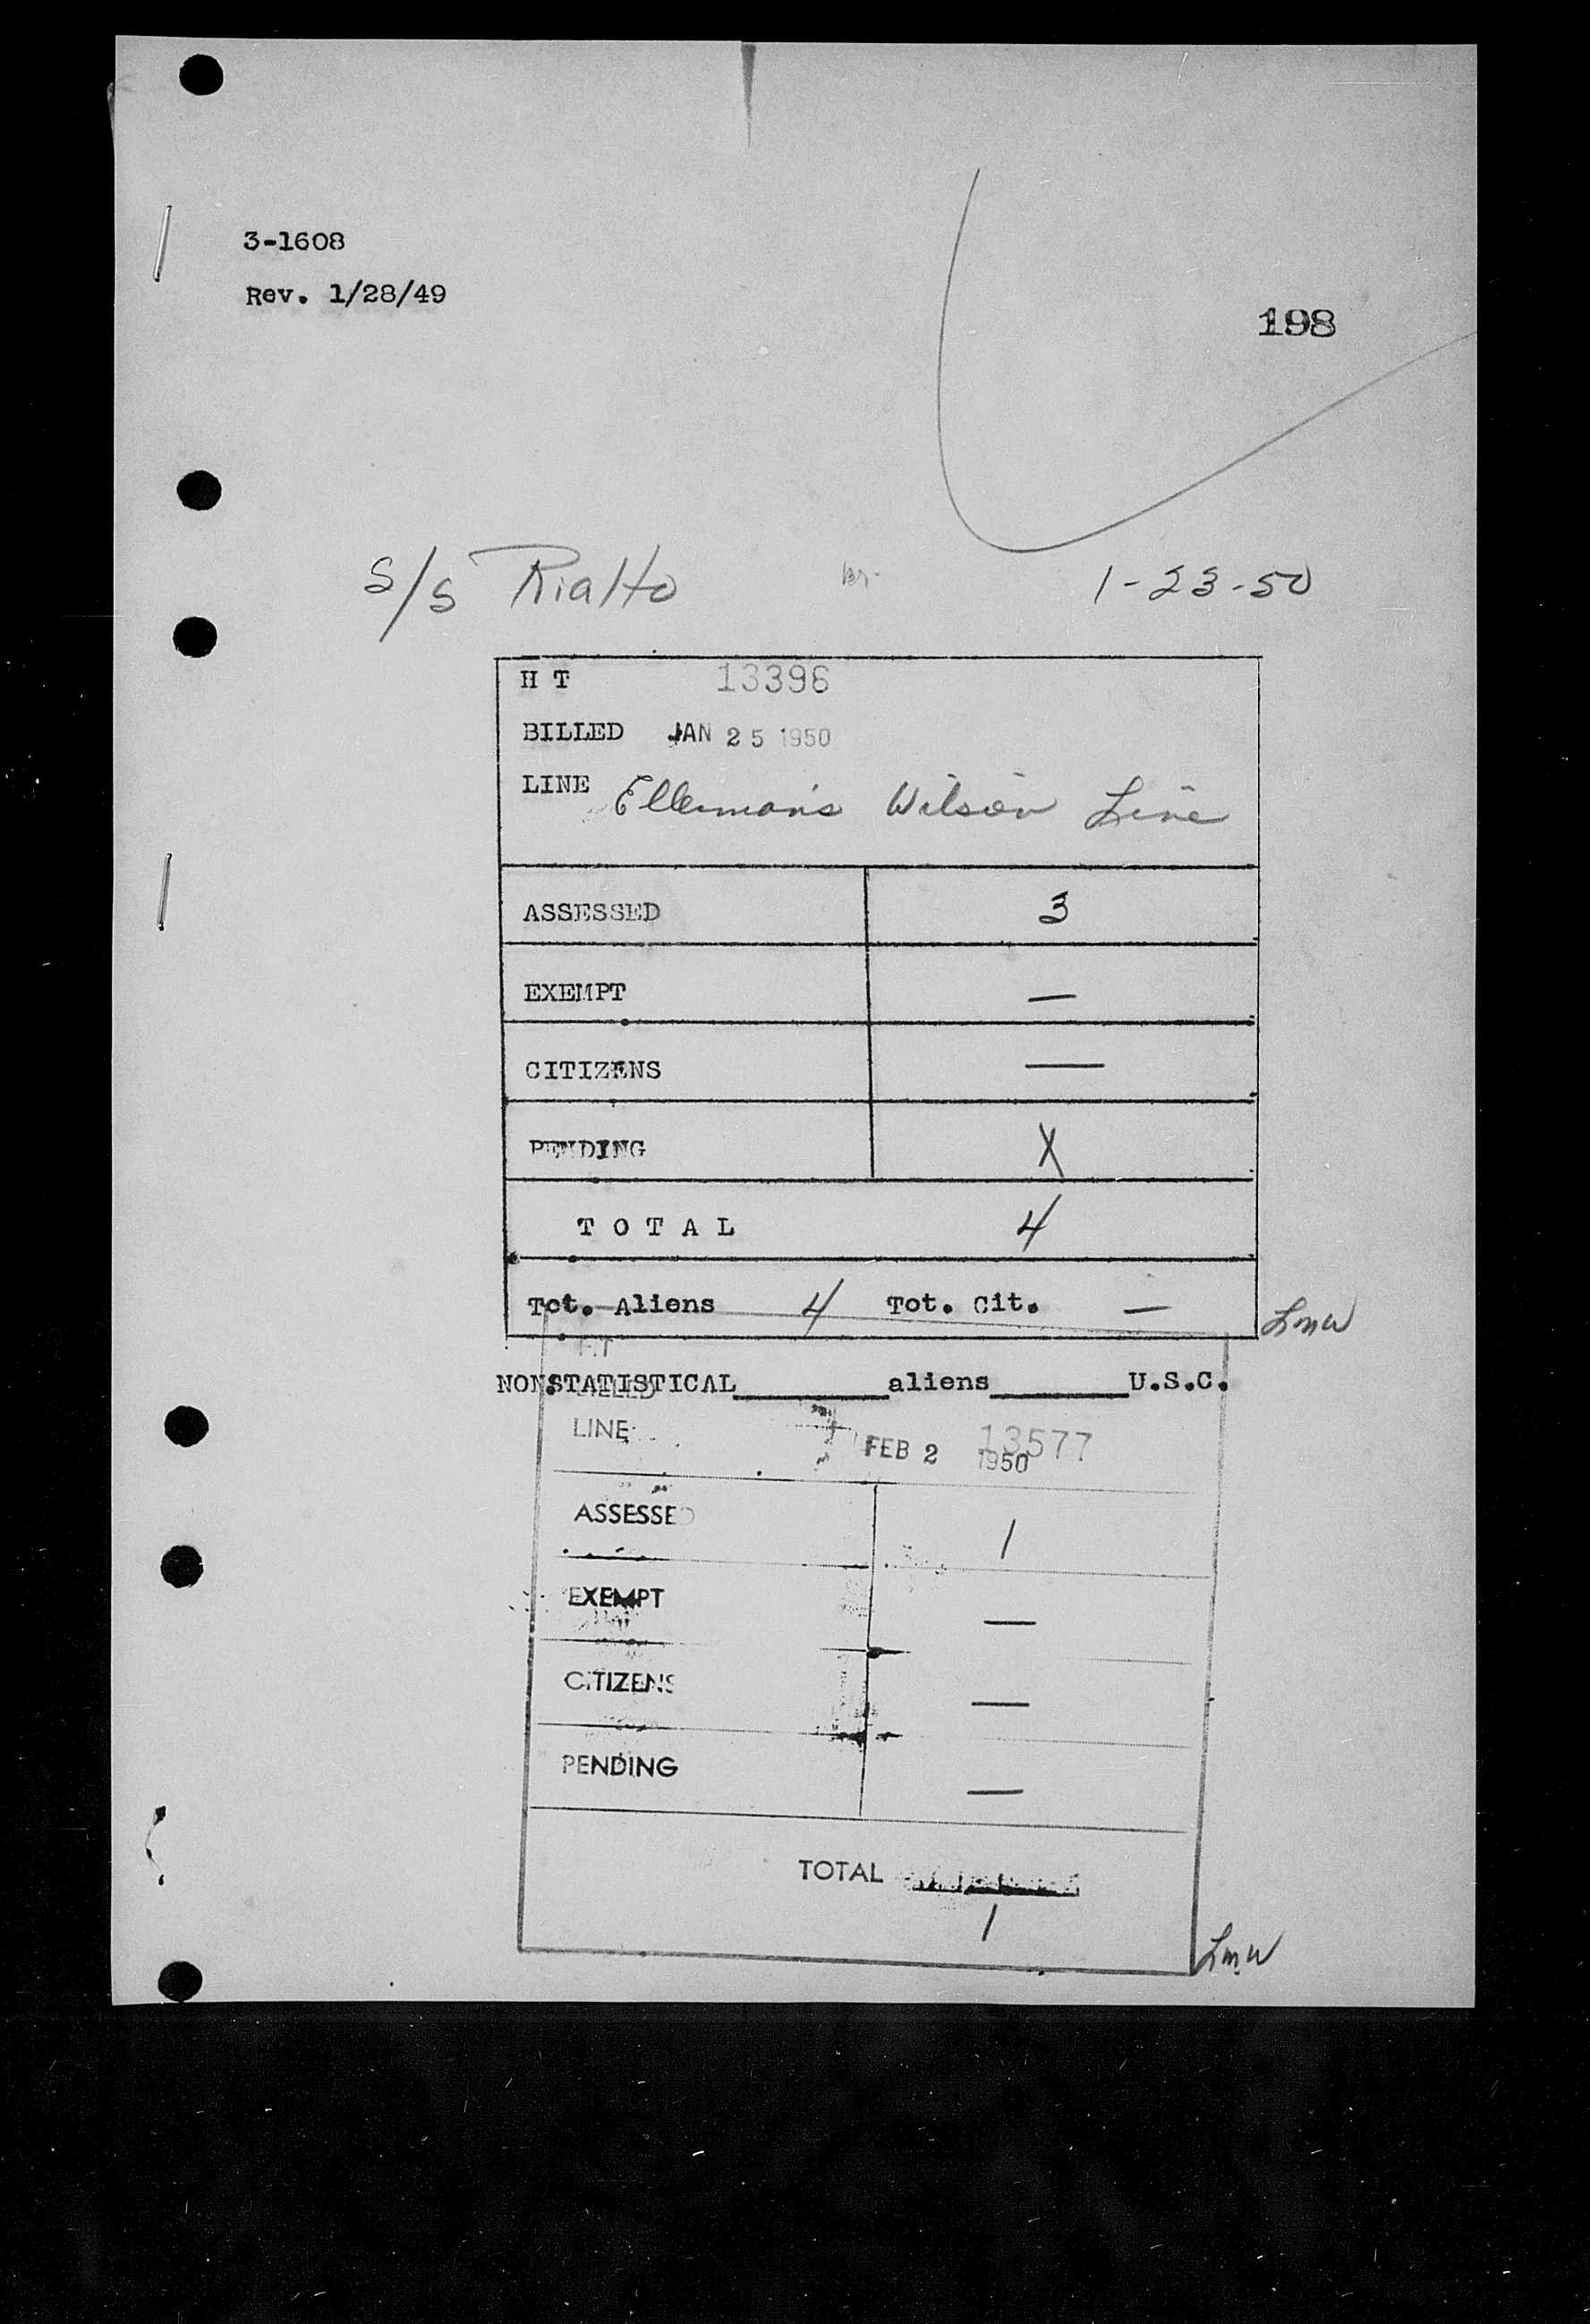 3-1608
Rev. 1/28/49
198
S/S Rialto 1-23-50
H T 13396
BILLED JAN 25 1950
LINE Ellerman's Wilson Line
ASSESSED 3
EXEMPT —
CITIZENS —
PENDING X
TOTAL 4
Tot. Aliens 4 Tot. Cit. —
Lmw
HT
NONSTATISTICAL________aliens_______U.S.C.
BILLED
LINE FEB 2 1950 13577
ASSESSED 1
EXEMPT —
CITIZENS —
PENDING —
TOTAL
1
Lmw